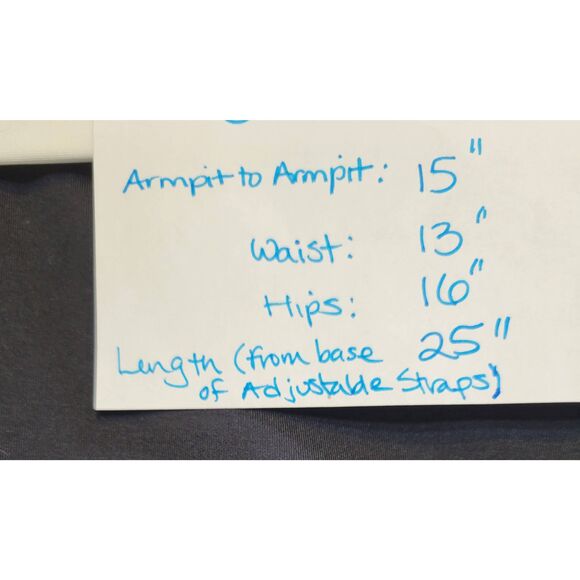 Armpit to Armpit: 15"
Waist: 13"
Hips: 16"
Length (from base 25"
of Adjustable Straps)